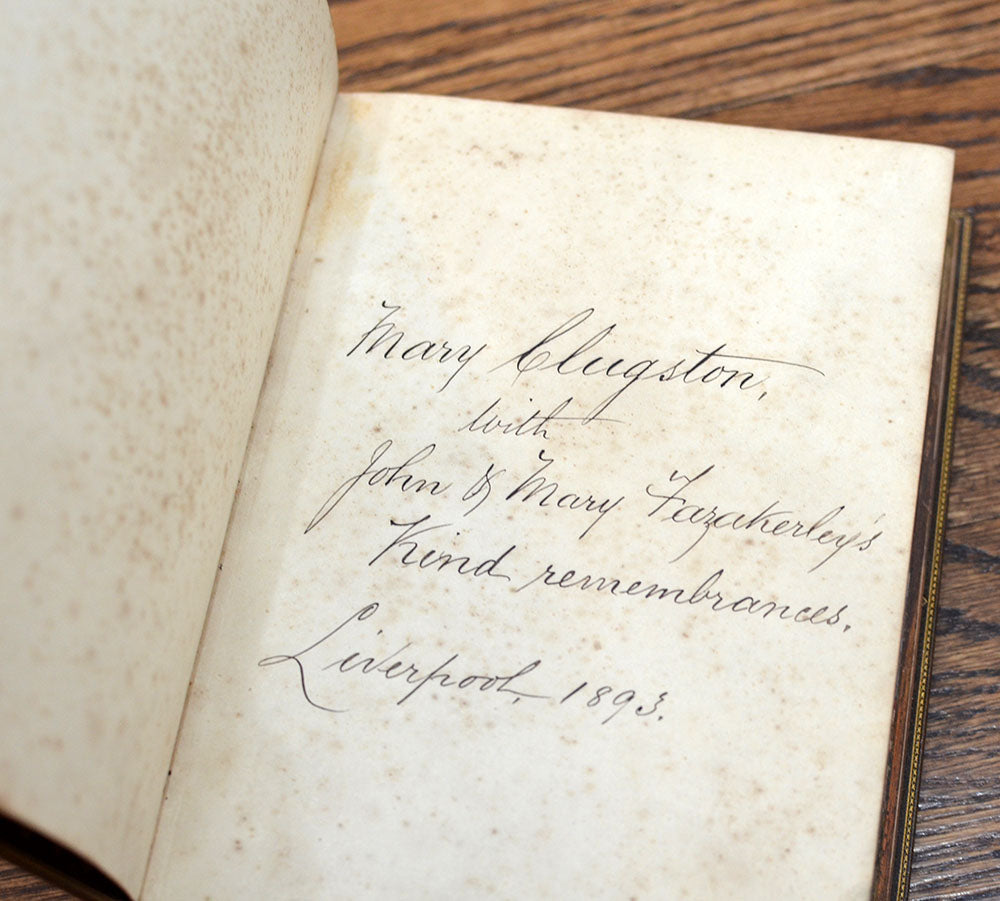 Mary Clugston,
with
John & Mary Fazakerley's
Kind remembrances.
Liverpool, 1893.